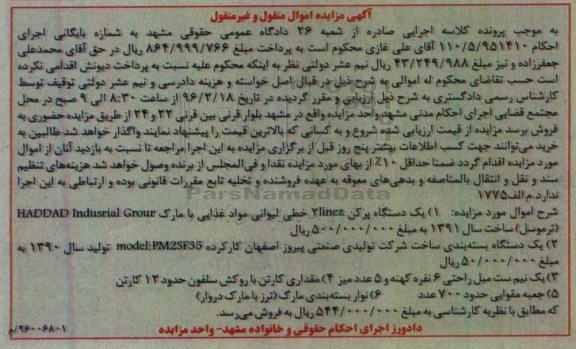 آگهی مزایده اموال منقول و غیرمنقول
به موجب پرونده کلاسه اجرایی صادره از شعبه ۲۶ دادگاه عمومی حقوقی مشهد به شماره بایگانی اجرای
احکام ۱۱۰/۵/۹۵۱۴۱۰ آقای علی غازی محکوم است به پرداخت مبلغ ۸۶۴/۹۹۹/۷۶۶ ریال در حق آقای محمدعلی
جعفرزاده و نیز مبلغ ۴۳/۲۴۹/۹۸۸ ریال نیم عشر دولتی نظر به اینکه محکوم علیه نسبت به پرداخت دیونش اقدامی نکرده
است حسب تقاضای محکوم له اموالی به شرح ذیل در قبال اصل خواسته و هزینه دادرسی و نیم عشر دولتی توقیف توسط
کارشناس رسمی دادگستری به شرح ذیل ارزیابی و مقرر گردیده در تاریخ ۹۶/۲/۱۸ از ساعت ۸:۳۰ الی ۹ صبح در محل
مجتمع قضایی اجرای احکام مدنی مشهد واحد مزایده واقع در مشهد بلوار قرنی بین قرنی ۲۲ و ۲۴ از طریق مزایده حضوری به
فروش برسد مزایده از قیمت ارزیابی شده شروع و به کسانی که بالاترین قیمت را پیشنهاد نمایند واگذار خواهد شد طالبین به
خرید می‌توانند جهت کسب اطلاعات بیشتر پنج روز قبل از برگزاری مزایده به این اجرا مراجعه تا نسبت به بازدید آنان از اموال
مورد مزایده اقدام گردد ضمنا حداقل ۱۰٪ از بهای مورد مزایده نقدا و فی‌المجلس از برنده وصول خواهد شد هزینه‌های تنظیم
سند و نقل و انتقال بالمناصفه و بدهی‌های معوقه به عهده فروشنده و تخلیه تابع مقررات قانونی بوده و ارتباطی به این اجرا
ندارد.م الف۱۷۷۵
شرح اموال مورد مزایده: ۱) یک دستگاه پرکن 2linez خطی لیوانی مواد غذایی با مارک HADDAD Indusrial Grour
(ترموسل) ساخت سال ۱۳۹۱ به مبلغ ۵۰۰/۰۰۰/۰۰۰ ریال
۲) یک دستگاه بسته‌بندی ساخت شرکت تولیدی صنعتی پیروز اصفهان کارکرده model:PM2SF35 تولید سال ۱۳۹۰ به
مبلغ ۵۰/۰۰۰/۰۰۰ ریال
۳) یک نیم ست مبل راحتی ۶ نفره کهنه و ۵ عدد میز ۴) مقداری کارتن با روکش سلفون حدود ۱۲ کارتن
۵) جعبه مقوایی حدود ۷۰۰ عدد ۶) نوار بسته‌بندی مارک (ترز با مارک دروار)
که مطابق با نظریه کارشناسی به مبلغ ۵۴۴/۰۰۰/۰۰۰ ریال به فروش می‌رسد.
دادورز اجرای احکام حقوقی و خانواده مشهد- واحد مزایده
۹۶۰۰۶۸۰۱/م
ParsNamadData